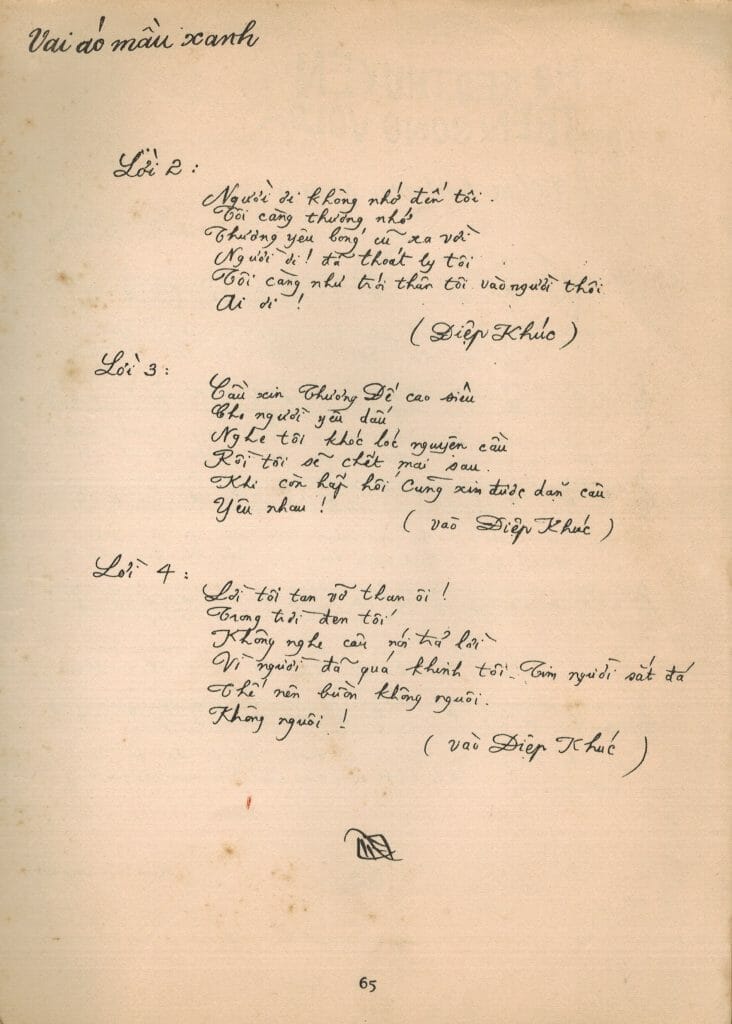 Vai áo mầu xanh
Lời 2 :
Người đi không nhớ đến tôi .
Tôi càng thương nhớ
Thương yêu bóng cũ xa vời
Người đi ! đã thoát ly tôi
Tôi càng như trói thân tôi vào người thôi
Ai đi !
( Điệp Khúc )
Lời 3 :
Cầu xin Thượng Đế cao siêu
Cho người yêu dấu
Nghe tôi khóc lóc nguyện cầu
Rồi tôi sẽ chết mai sau .
Khi còn hấp hối Cũng xin được dăn câu
Yêu nhau !
( vào Điệp Khúc )
Lời 4 :
Lời tôi tan vỡ than ôi !
Trong trời đen tối
Không nghe câu nói trả lời
Vì người đã quá khinh tôi - Tim người sắt đá
Thế nên buồn không nguôi .
Không nguôi !
( vào Điệp Khúc )
65